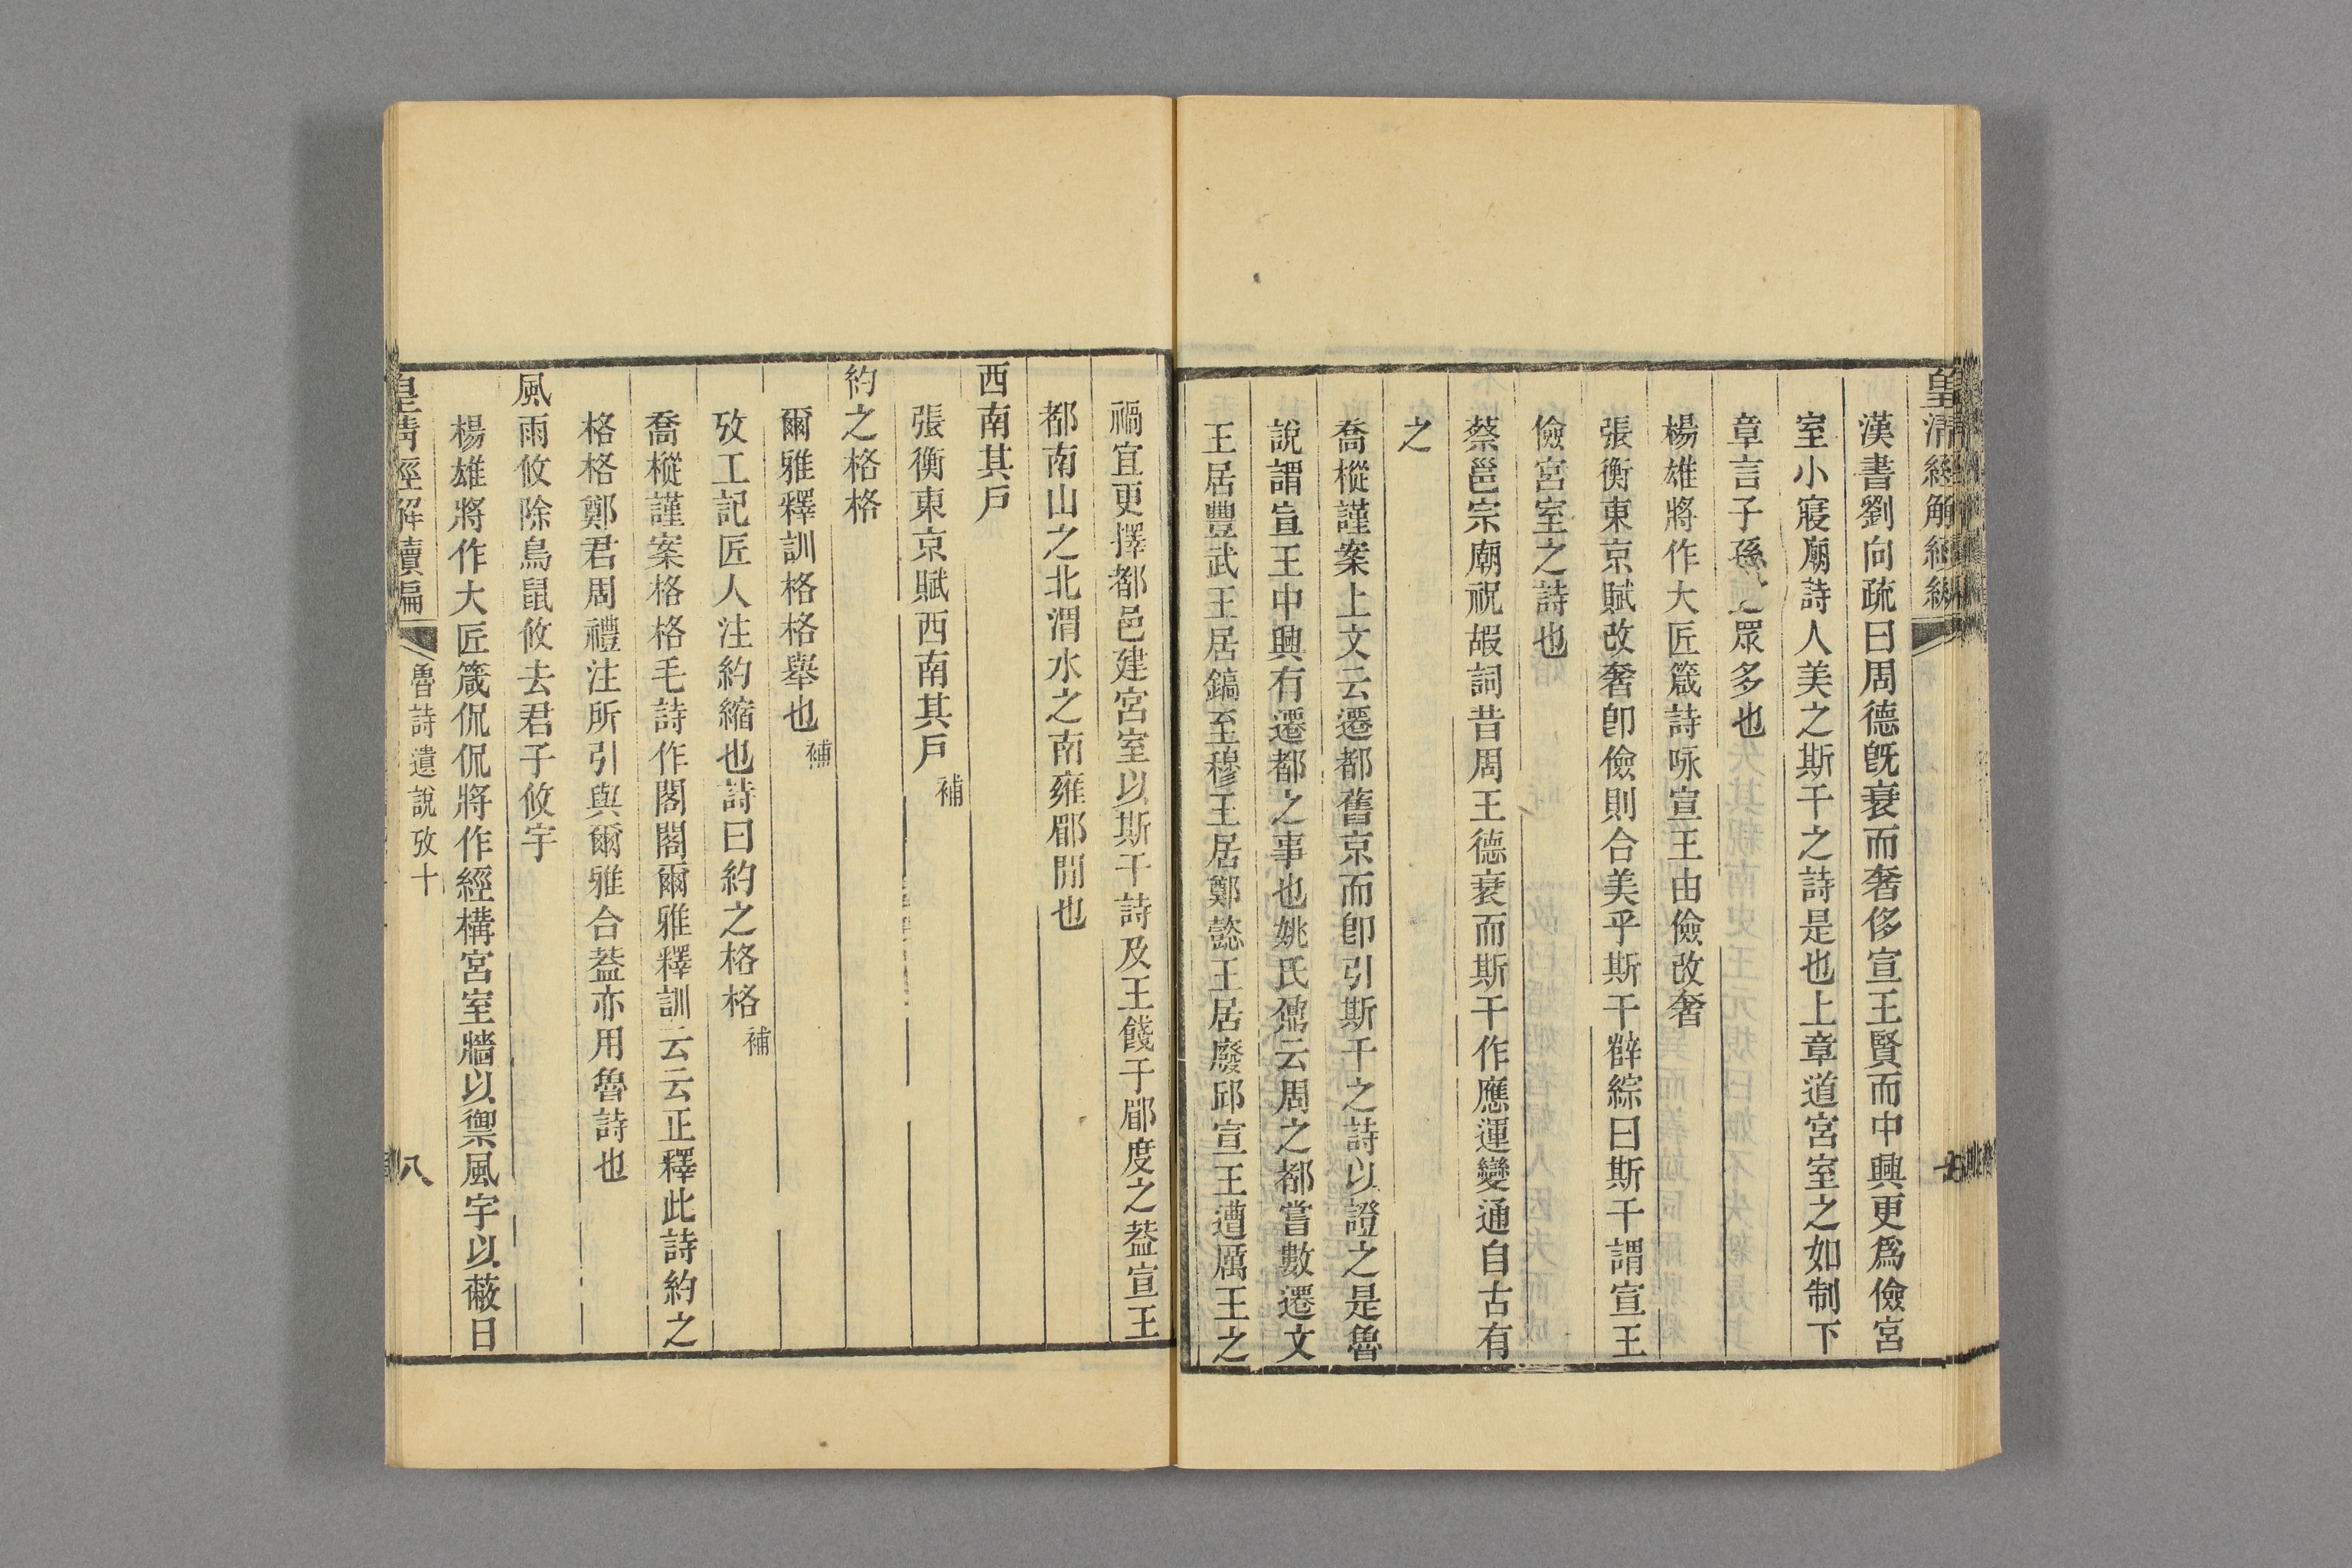 皇清經解
漢書劉向疏曰周德旣衰而奢侈宣王賢而中興更爲儉宮
室小寢廟詩人美之斯干之詩是也上章道宮室之如制下
章言子孫之眾多也
楊雄將作大匠箴詩咏宣王由儉改奢
張衡東京賦改奢卽儉則合美乎斯干薛綜曰斯干謂宣王
儉宮室之詩也
蔡邕宗廟祝嘏詞昔周王德衰而斯干作應運變通自古有
之
喬樅謹案上文云遷都舊京而卽引斯干之詩以證之是魯
說謂宣王中興有遷都之事也姚氏鼐云周之都嘗數遷文
王居豐武王居鎬至穆王居鄭懿王居廢邱宣王遭厲王之
禍宜更擇都邑建宮室以斯干詩及王餞于郿度之葢宣王
都南山之北渭水之南雍郿閒也
西南其戶
張衡東京賦西南其戶補
約之格格
爾雅釋訓格格舉也補
攷工記匠人注約縮也詩曰約之格格補
喬樅謹案格格毛詩作閣閣爾雅釋訓云云正釋此詩約之
格格鄭君周禮注所引與爾雅合葢亦用魯詩也
風雨攸除鳥鼠攸去君子攸宇
楊雄將作大匠箴侃侃將作經構宮室牆以禦風宇以蔽日
皇清經解續編 魯詩遺說攷十 八